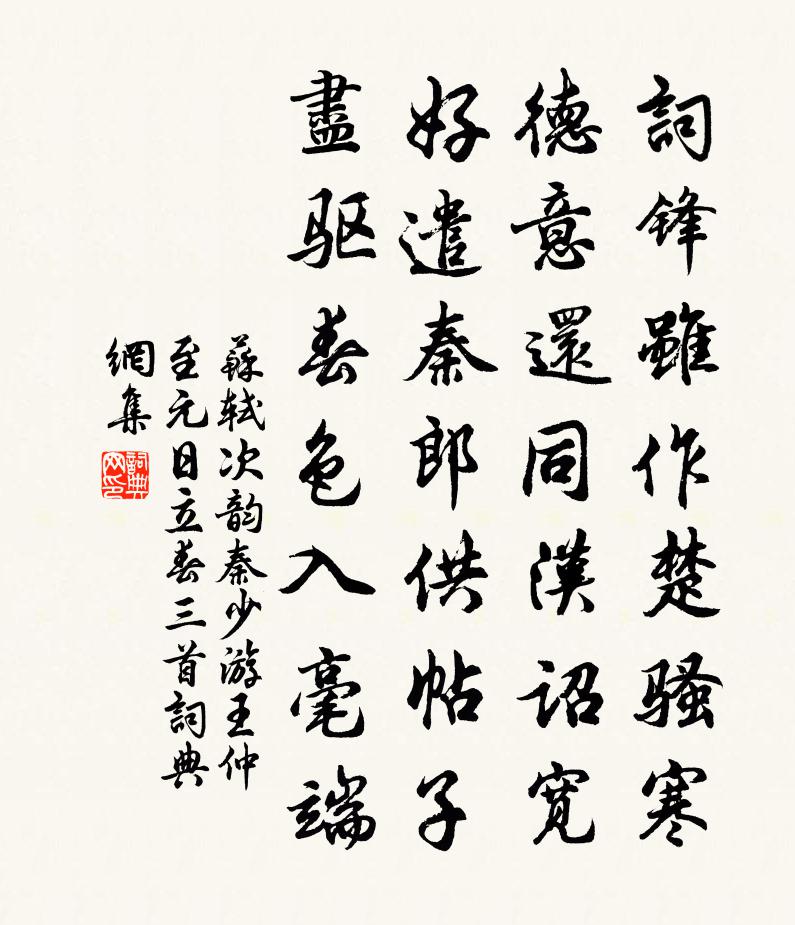 詞鋒雖作楚骚寒
德意還同漢詔寬
好遣秦郎供帖子
盡驱春色入毫端
蘇軾次韵秦少游王仲
至元日立春三首詞典
網集
詞典
网印